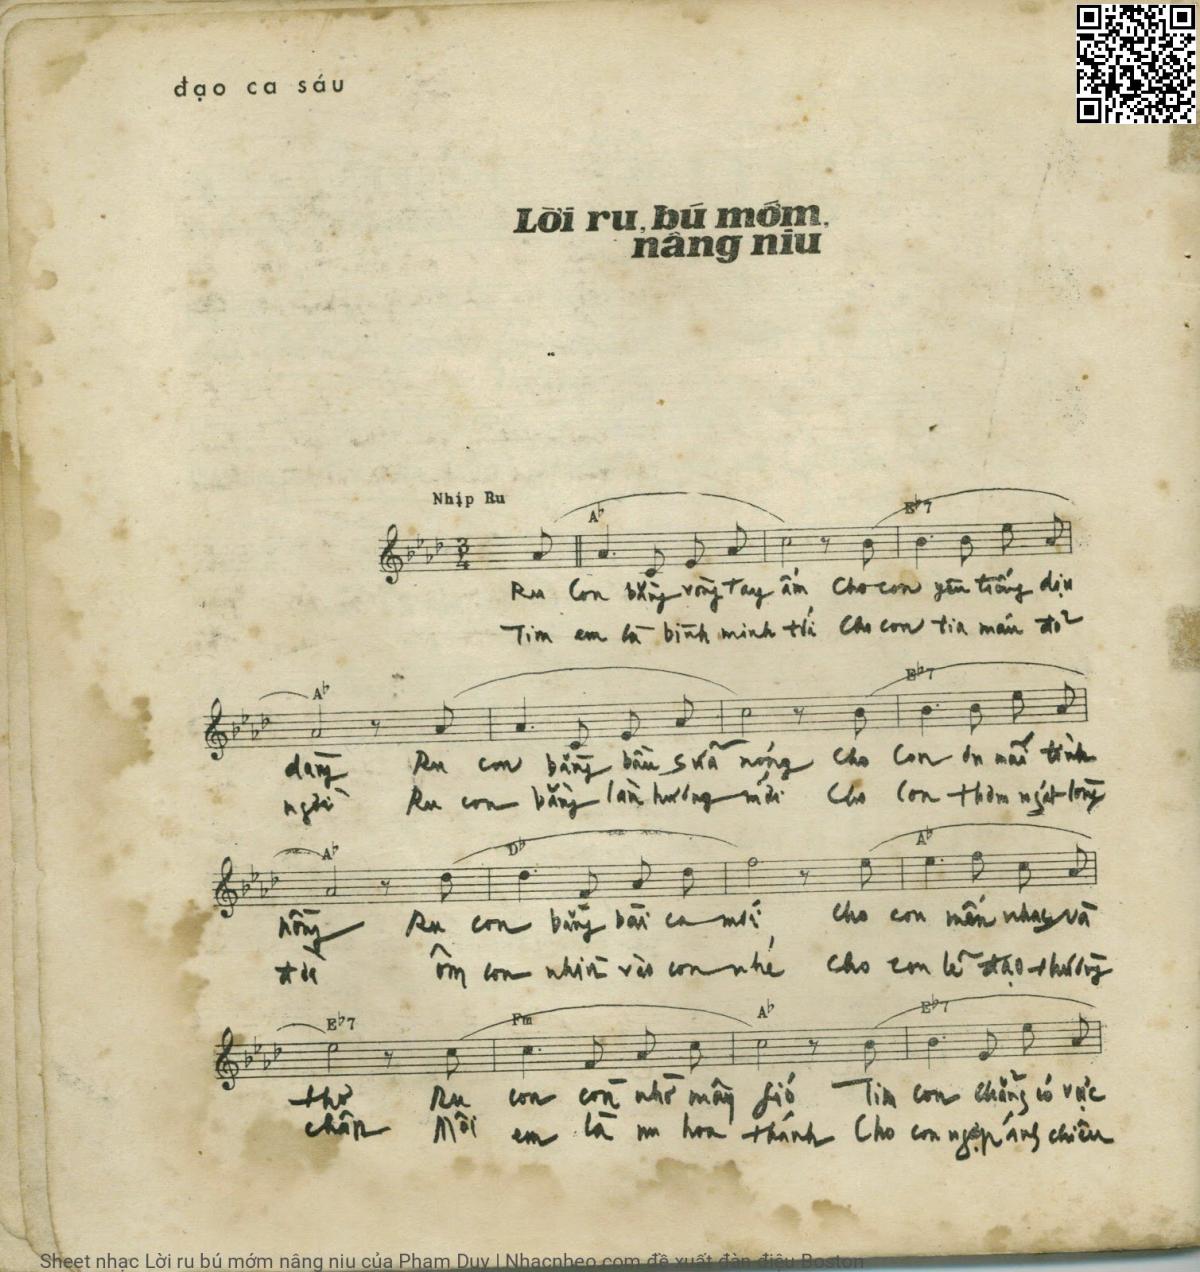 đạo ca sáu
Lời ru, bú mớm,
nâng niu
Nhịp Ru
A♭ E♭7
3 4
Ru Con bằng vòng tay ấm Cho con yên tiếng dịu
Tim em là bình minh tới Cho con tia máu đỏ
A♭ E♭7
dàng Ru con bằng bầu sữa nóng Cho Con ơn mãi tình
người Ru con bằng làn hương mới Cho Con thơm ngát lòng
A♭ D♭ A♭
nồng Ru con bằng bài ca mới Cho con mến nhạc và
đời Ôm con nhịn vào con nhé Cho con lễ đạo thường
E♭7 Fm A♭ E♭7
thơ Ru con còn nhờ mây gió Tim con chẳng có vực
chân Môi em là nụ hoa thánh Cho con ngợp ánh chiều
Sheet nhạc Lời ru bú mớm nâng niu của Phạm Duy | Nhacnheo.com đề xuất đàn điệu Boston